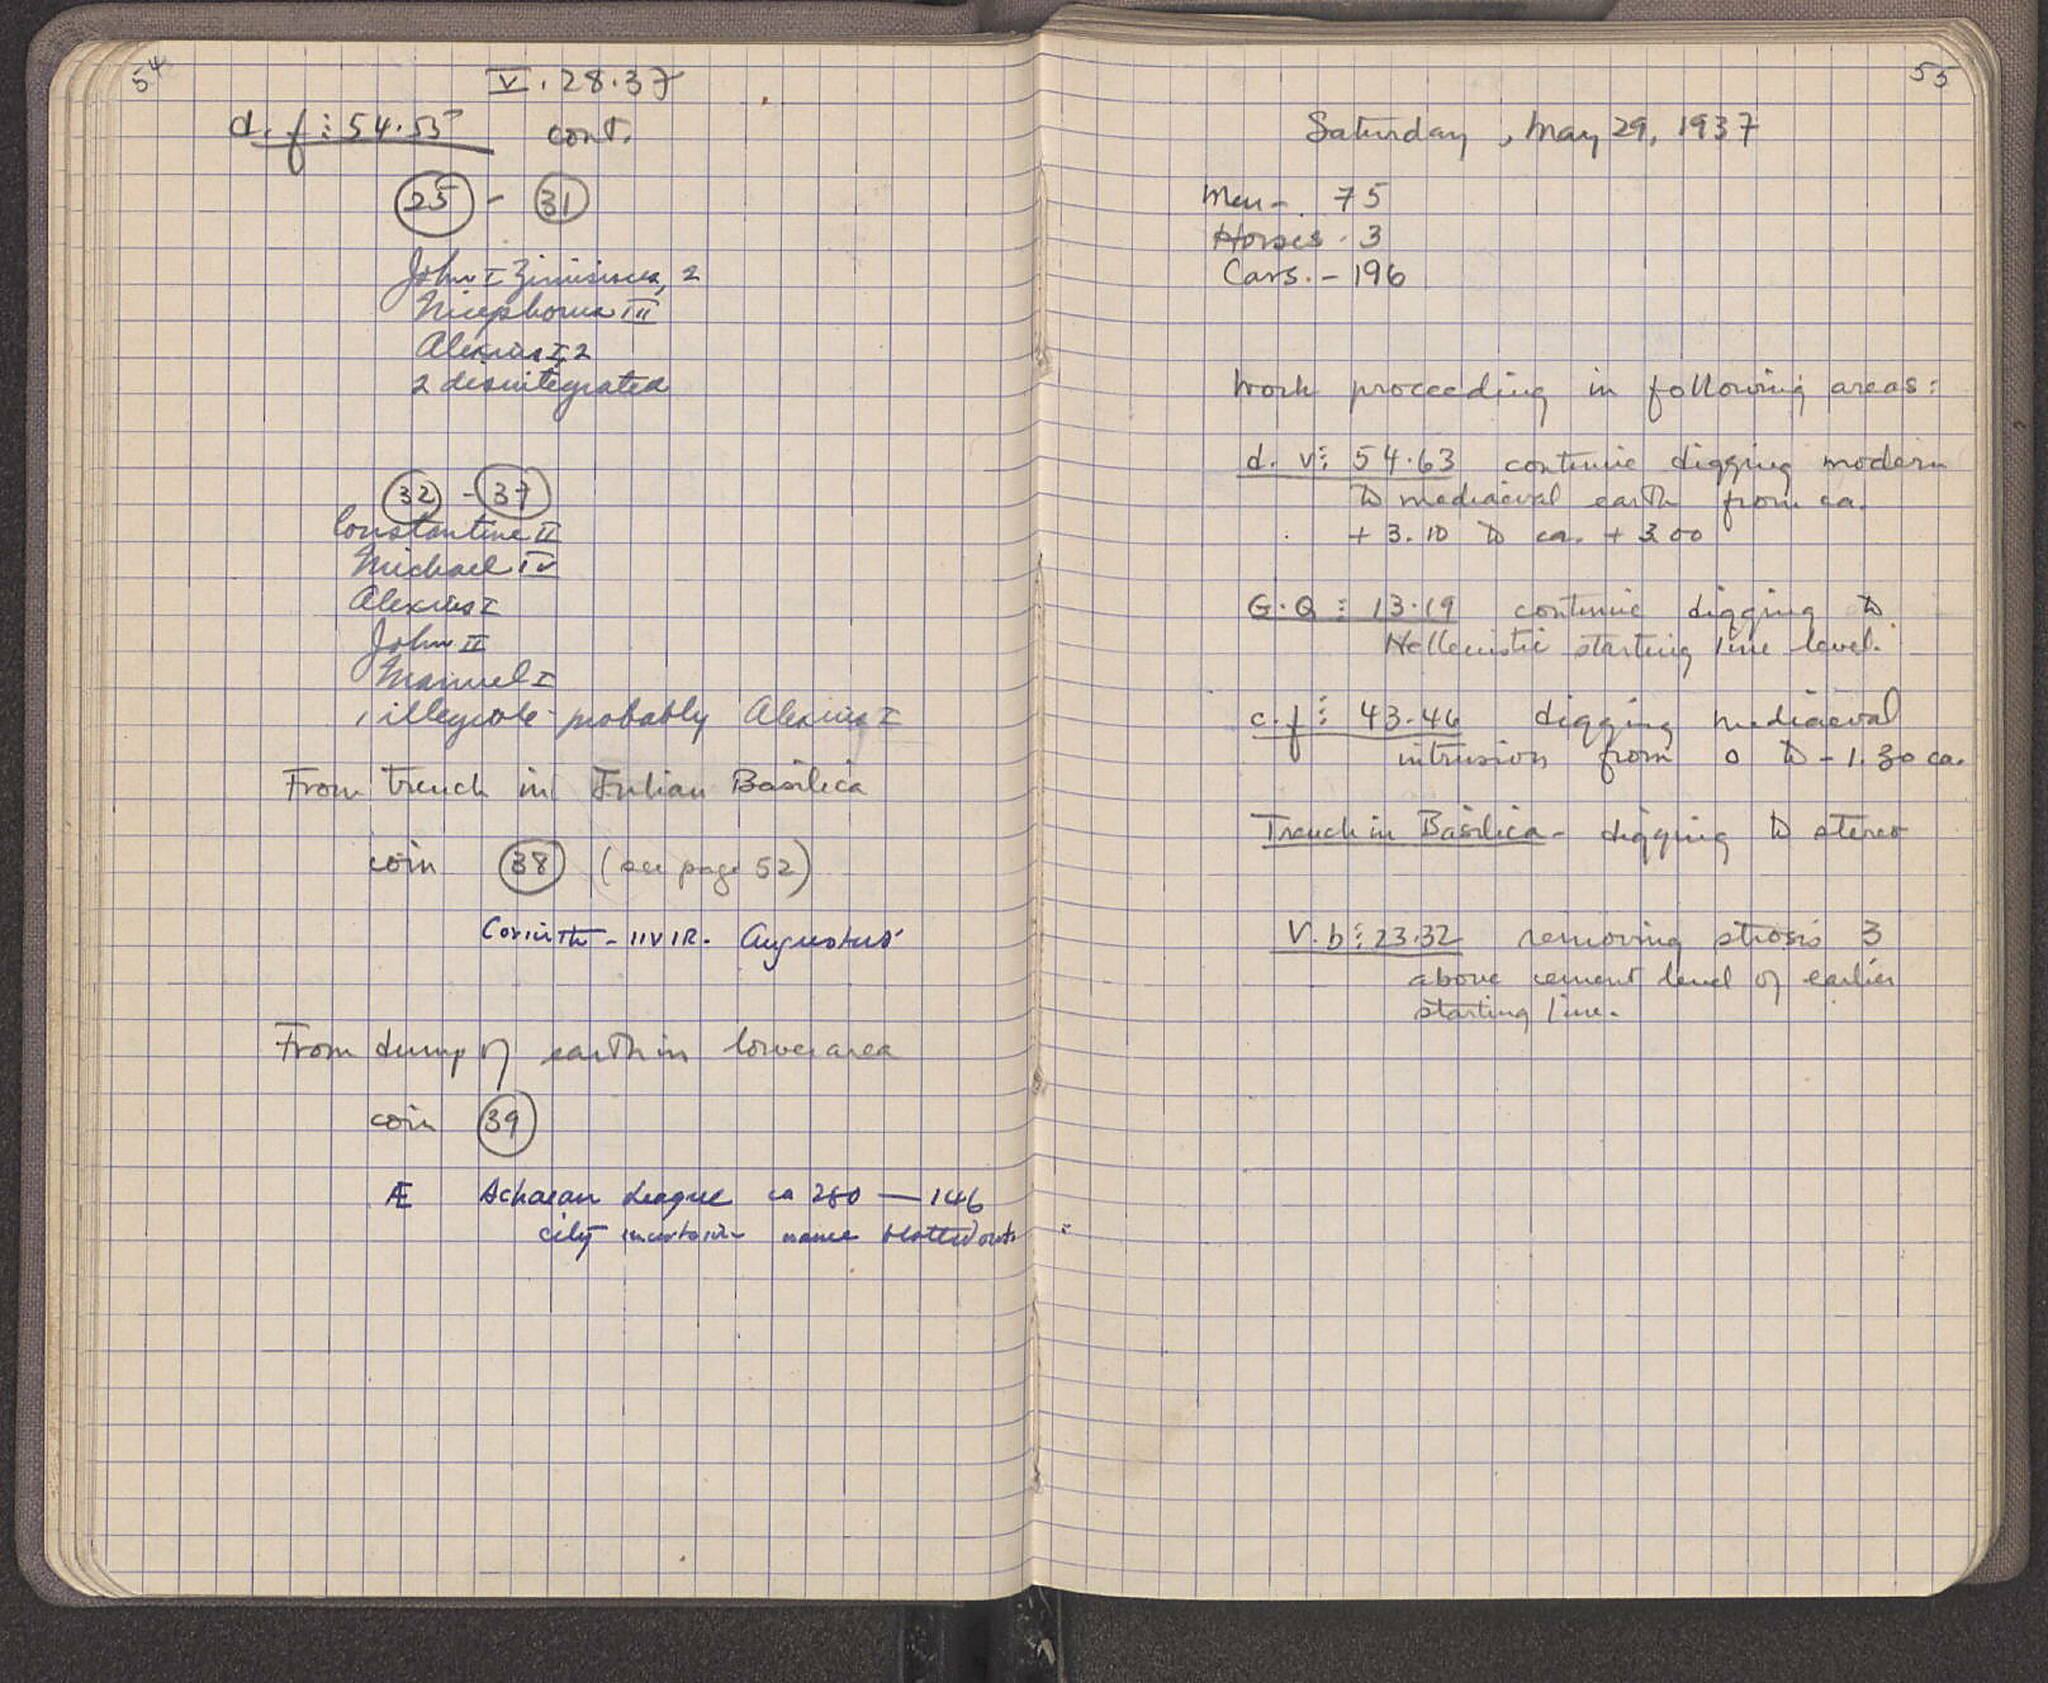 54
V. 28. 37
d. f ⋮ 54.55 cont.
25 - 31
John I Zimisces, 2
Nicephorus III
Alexius I, 2
2 disintegrated
32 - 37
Constantine II
Michael IV
Alexius I
John II
Manuel I
1 illegible - probably Alexius I
From trench in Julian Basilica
coin 38 (see page 52)
Corinth - IIVIR. Augustus
From dump of earth in lower area
coin 39
Æ Achaean League ca 280 — 146
city uncertain - name blotted out
55
Saturday, May 29, 1937
Men - 75
Horses - 3
Cars. - 196
Work proceeding in following areas:
d. v ⋮ 54.63 continue digging modern
to mediaeval earth from ca.
+ 3.10 to ca. + 3.00
G.Q ⋮ 13.19 continue digging to
Hellenistic starting line level.
c.f ⋮ 43.46 digging mediaeval
intrusion from 0 to - 1.30 ca.
Trench in Basilica - digging to stereo
V.b ⋮ 23.32 removing strosis 3
above cement level of earlier
starting line.